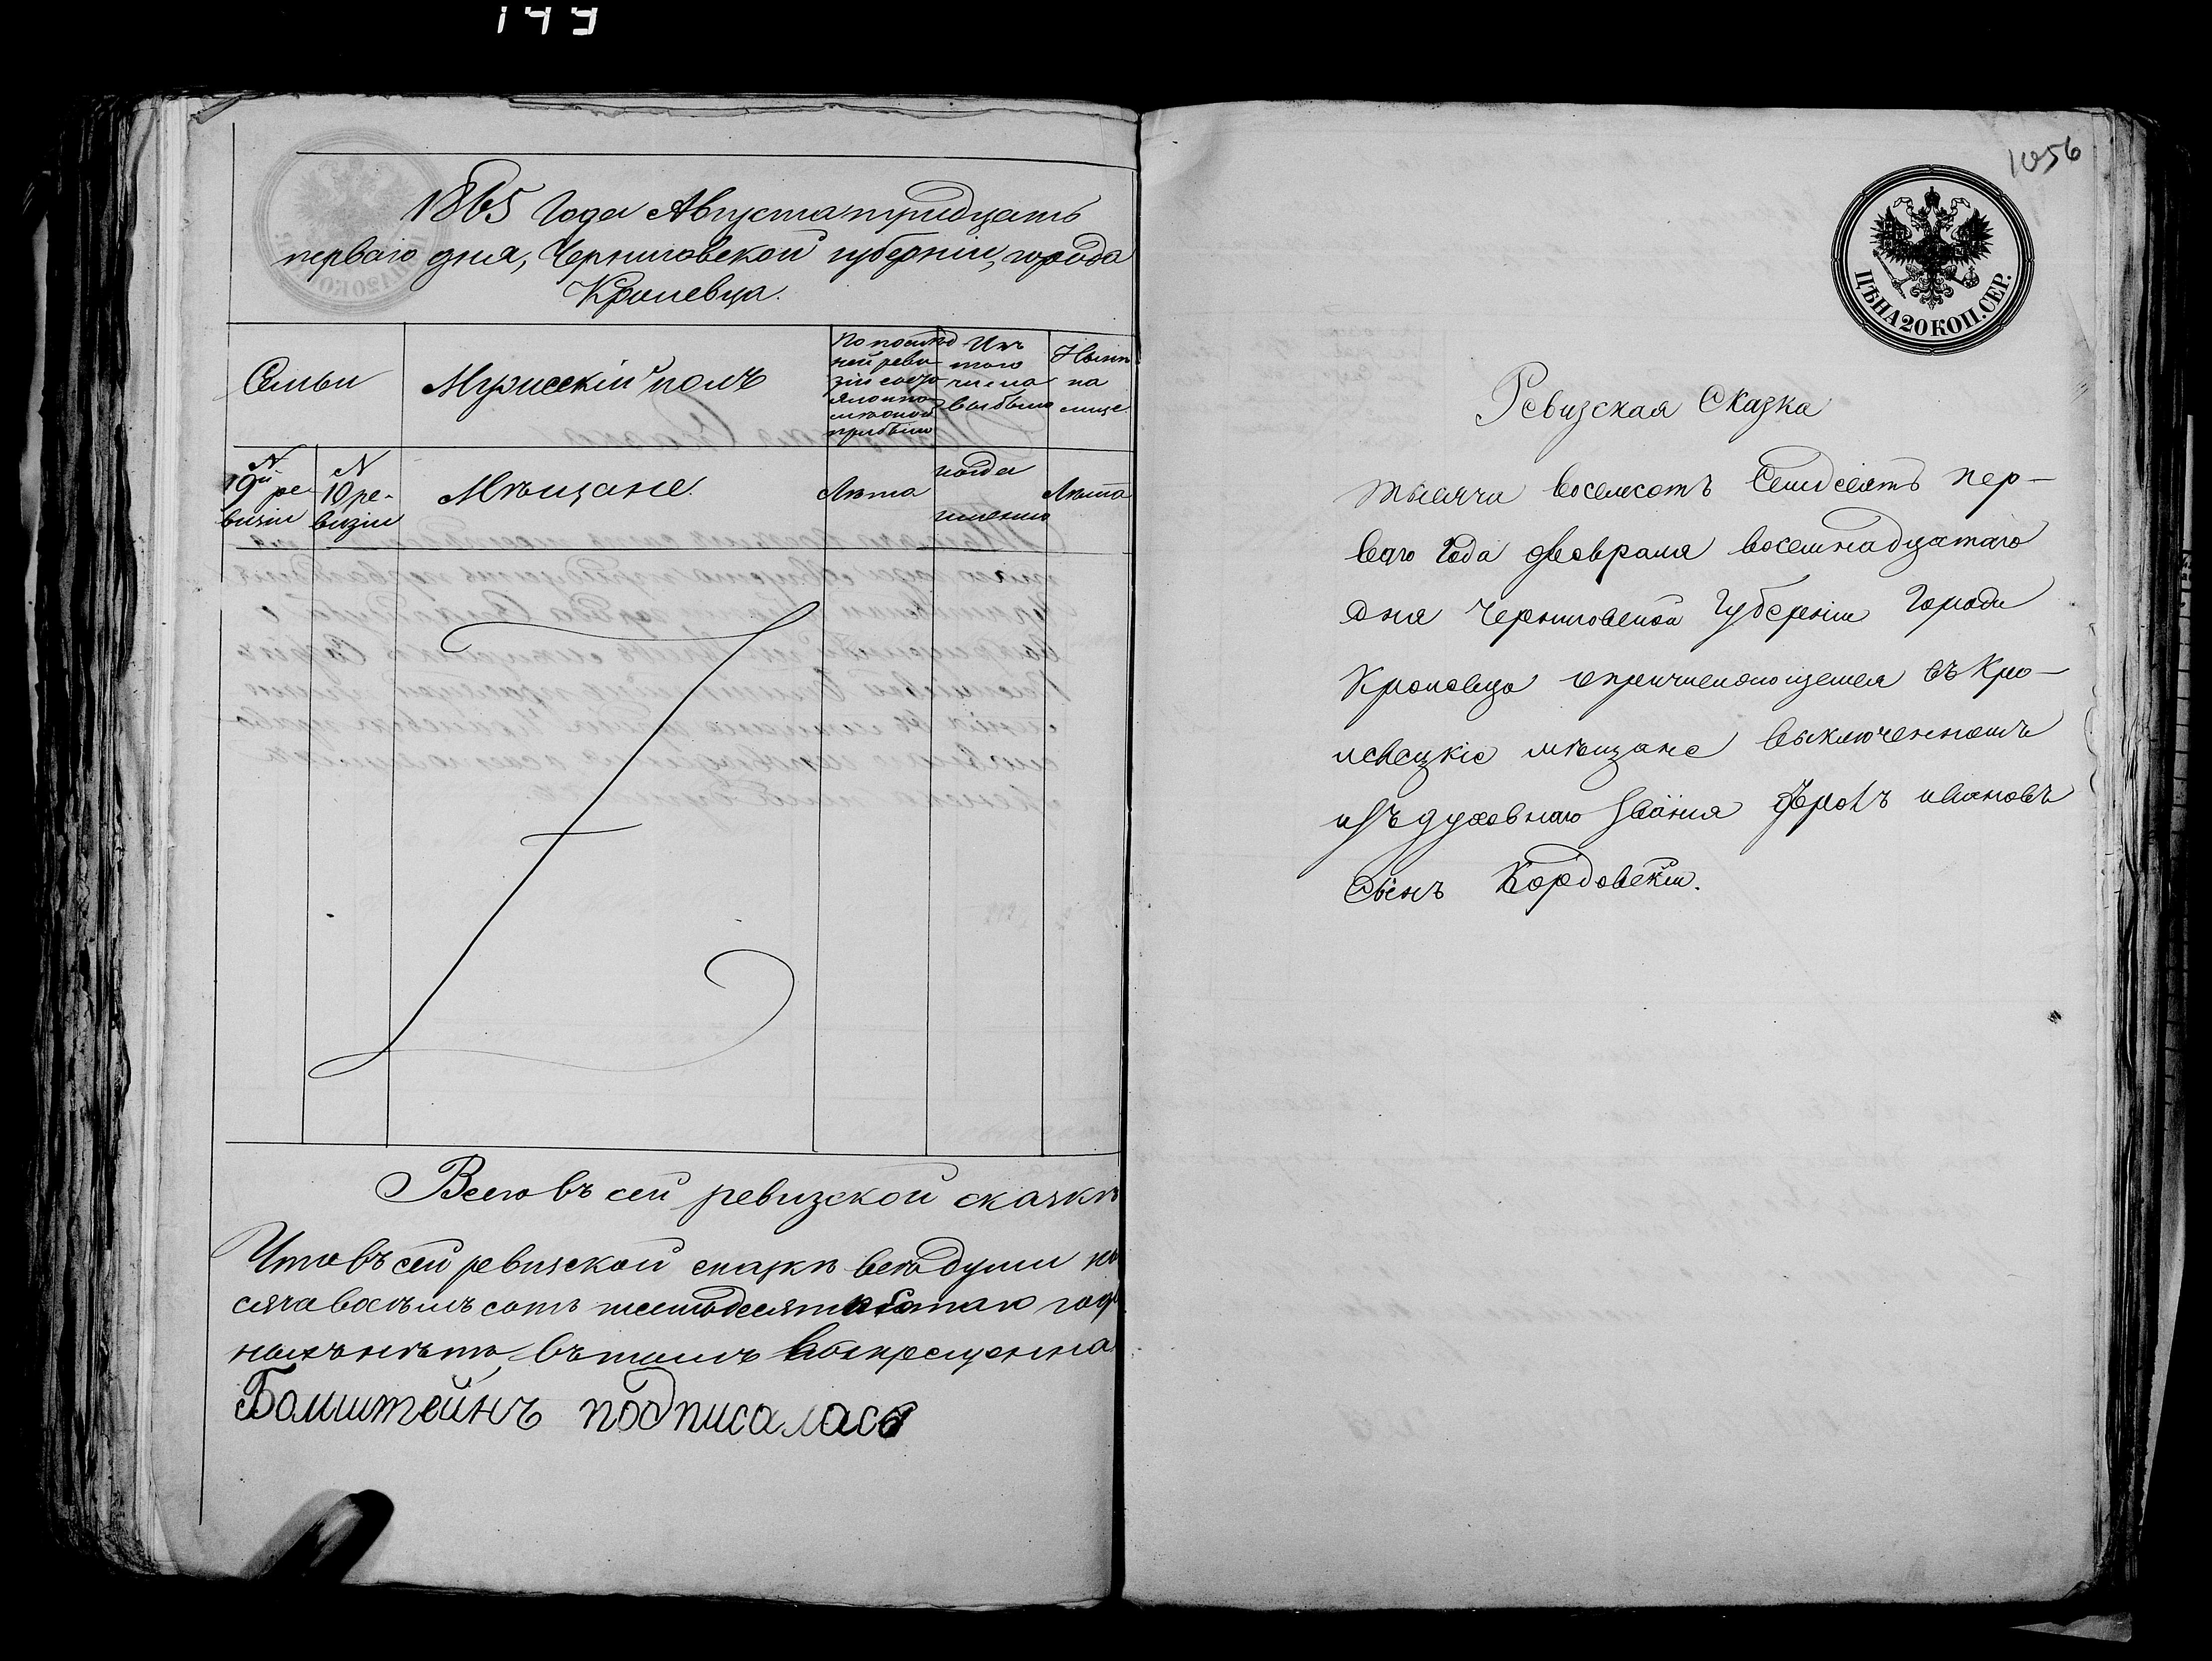 144
1865 Года Августа тридцать
перваго дня, Черниговской губерніи, города
Кролевца.
Семьи
Мужескій полъ
По послѣд
ней реви-
зіи состо
яло и по-
слѣ оной
прибыло
Изъ
того
числа
выбыло
Нынѣ
на
лице
N
9й ре
визіи
N
10 ре-
визіи
Мѣщане.
Лѣта
когда
именно
Лѣта
Всего въ сей ревизской сказкѣ
Что въ сей ревизской сказкѣ всѣ души
сяча восъмъ сотъ шестьдесятъ
ныхъ нѣтъ, въ томъ
Бомштейнъ подписалась
1056
ЦѢНА 20 КОП. СЕР.
Ревизская Сказка
тысяча восемсотъ Семдесятъ пер-
ваго Года февраля восемнадцатаго
дня Черниговской Губерніи Города
Кролевца о причисляющемся въ Кро-
левецкіе мѣщане выключенномъ
изъ духовнаго званія Ивановъ
Сынъ Кордовскій.